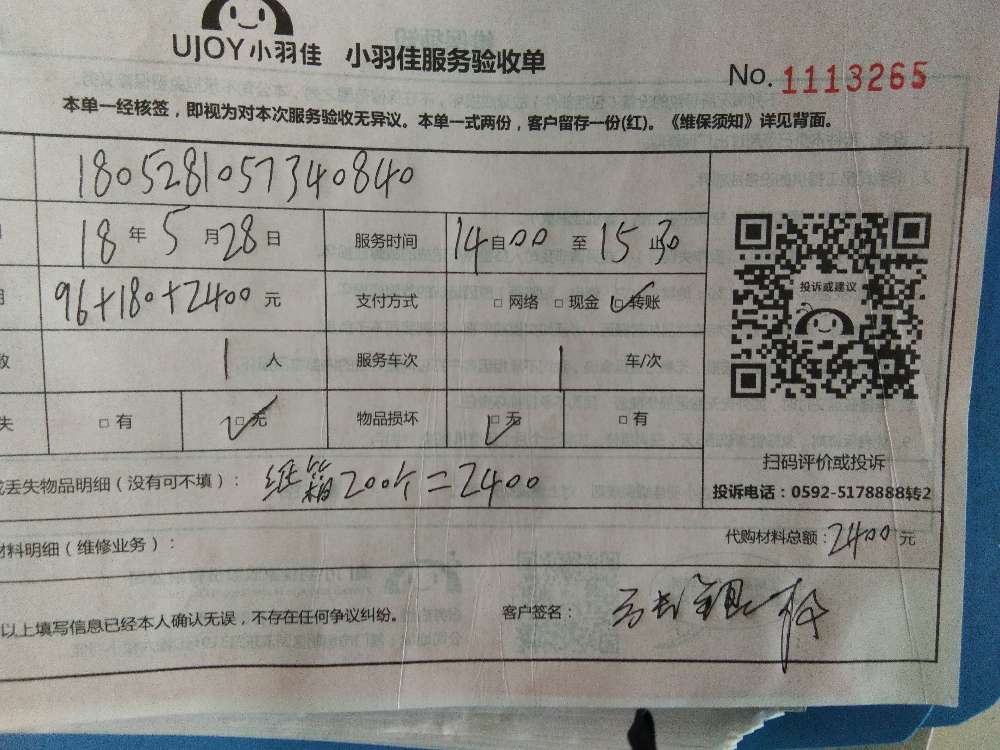 UJOY小羽佳 小羽佳服务验收单
No. 1113265
本单一经核签，即视为对本次服务验收无异议。本单一式两份，客户留存一份(红)。《维保须知》详见背面。
1805281057340840
18年5月28日 服务时间 14自00至15止30
96+180+2400元 支付方式 □网络 □现金 □转账
投诉或建议
数 1人 服务车次 1 车/次
失 □有 □无 物品损坏 □无 □有
扫码评价或投诉
或丢失物品明细（没有可不填）： 纸箱200个=2400
投诉电话：0592-5178888转2
材料明细（维修业务）： 代购材料总额：2400元
以上填写信息已经本人确认无误，不存在任何争议纠纷。 客户签名：